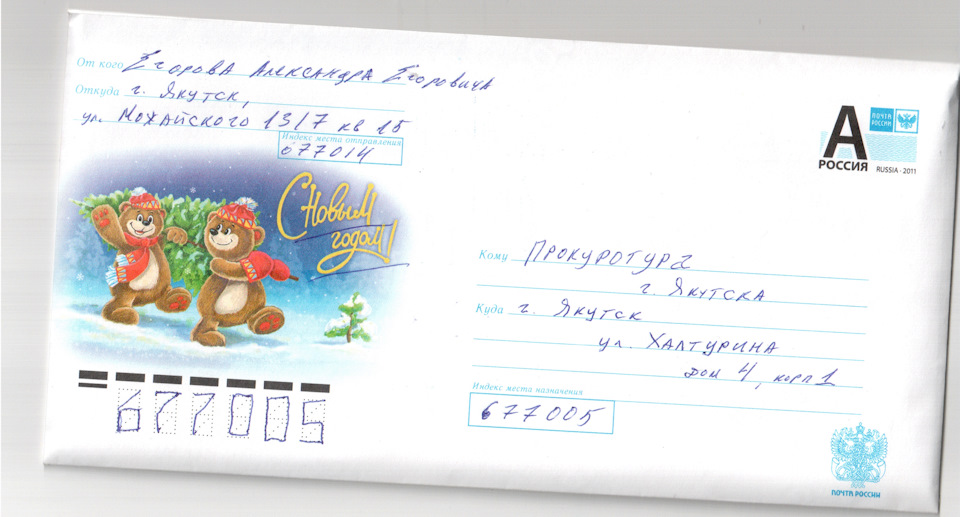 От кого Егорова Александра Егоровича
Откуда г. Якутск,
ул. Можайского 13/7 кв 15
Индекс места отправления
677014
С Новым
годом!
А
РОССИЯ
ПОЧТА
РОССИИ
RUSSIA · 2011
Кому Прокуротура
г. Якутска
Куда г. Якутск
ул. Халтурина
дом 4, корп 1
Индекс места назначения
677005
677005
ПОЧТА РОССИИ